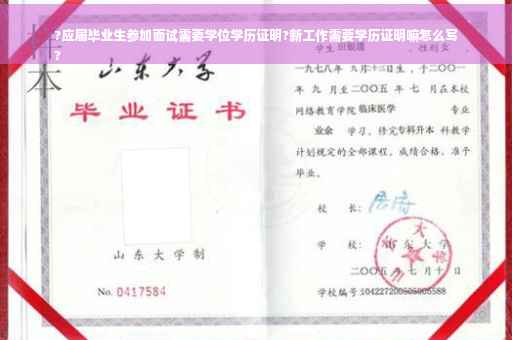 ?应届毕业生参加面试需要学位学历证明?新工作需要学历证明嘛怎么写
?
样
本
山东大学
毕业证书
山东大学制
No. 0417584
学生 田敏瑞 ,性别 女 ,
一九七八 年 九 月十二日生,于二〇〇一
年 九 月至二〇〇五 年 七 月在本校
网络教育学院 临床医学 专业
业余 学习,修完专科升本 科教学
计划规定的全部课程,成绩合格,准予
毕业。
校 长:
学 校: 山东大学
二〇〇五 年 七 月 十 日
学校编号: